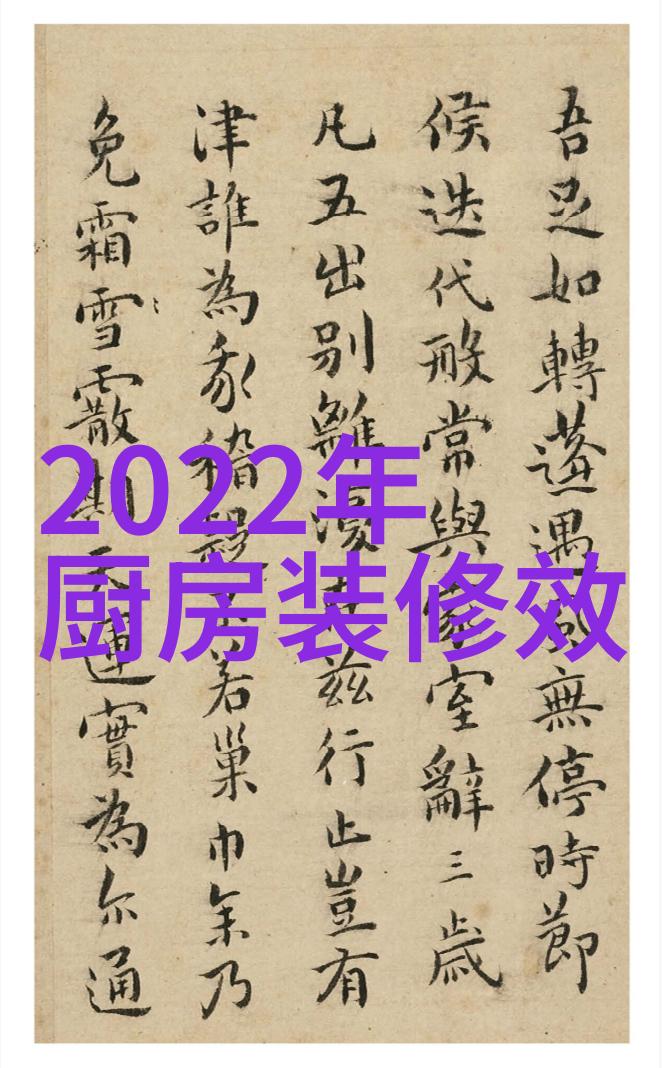 2022年
厨房装修效
吾足如轉蓬遇風無停時節
候迭代常與室辭三歲
凡五出別離茲行止豈有
津誰為我稽若巢巾乃
免霜雪霰天運實為尔通